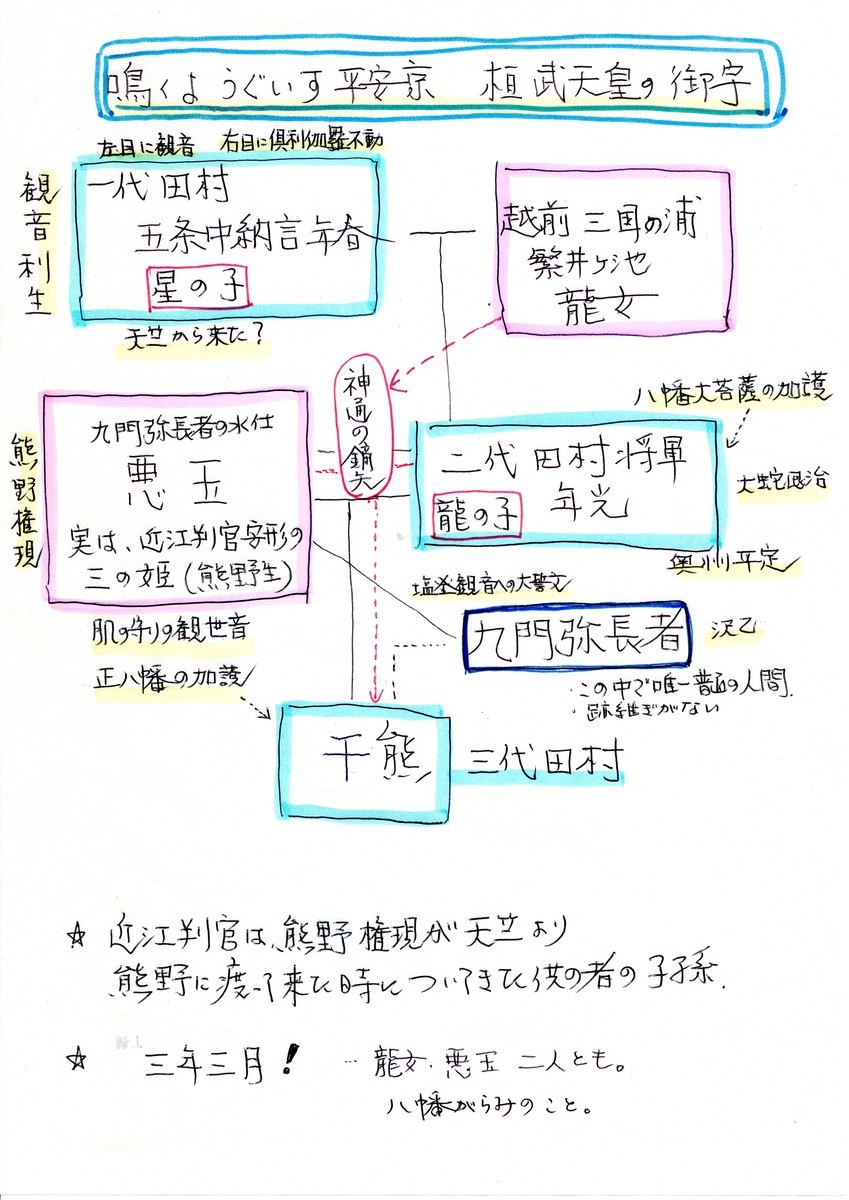 鳴くようぐいす平安京 桓武天皇の御宇
左目に観音 右目に倶利伽羅不動
観音利生
一代田村
五条中納言年春
星の子
天竺から来た?
越前 三国の浦
繁井ヶ池
龍女
神通の鏑矢
八幡大菩薩の加護
熊野権現
九門弥長者の水仕
悪玉
実は、近江判官字形の
三の姫(熊野生)
肌の守りの観世音
正八幡の加護
二代 田村将軍
年光
龍の子
大蛇退治
奥州平定
塩釜観音への大誓文
九門弥長者
沢乙
・この中で唯一普通の人間.
・跡継ぎがない
千熊
三代田村
☆ 近江判官は、熊野権現が天竺より
熊野に渡って来た時についてきた供の者の子孫.
☆ 三年三月! … 龍女・悪玉 二人とも。
八幡がらみのこと。